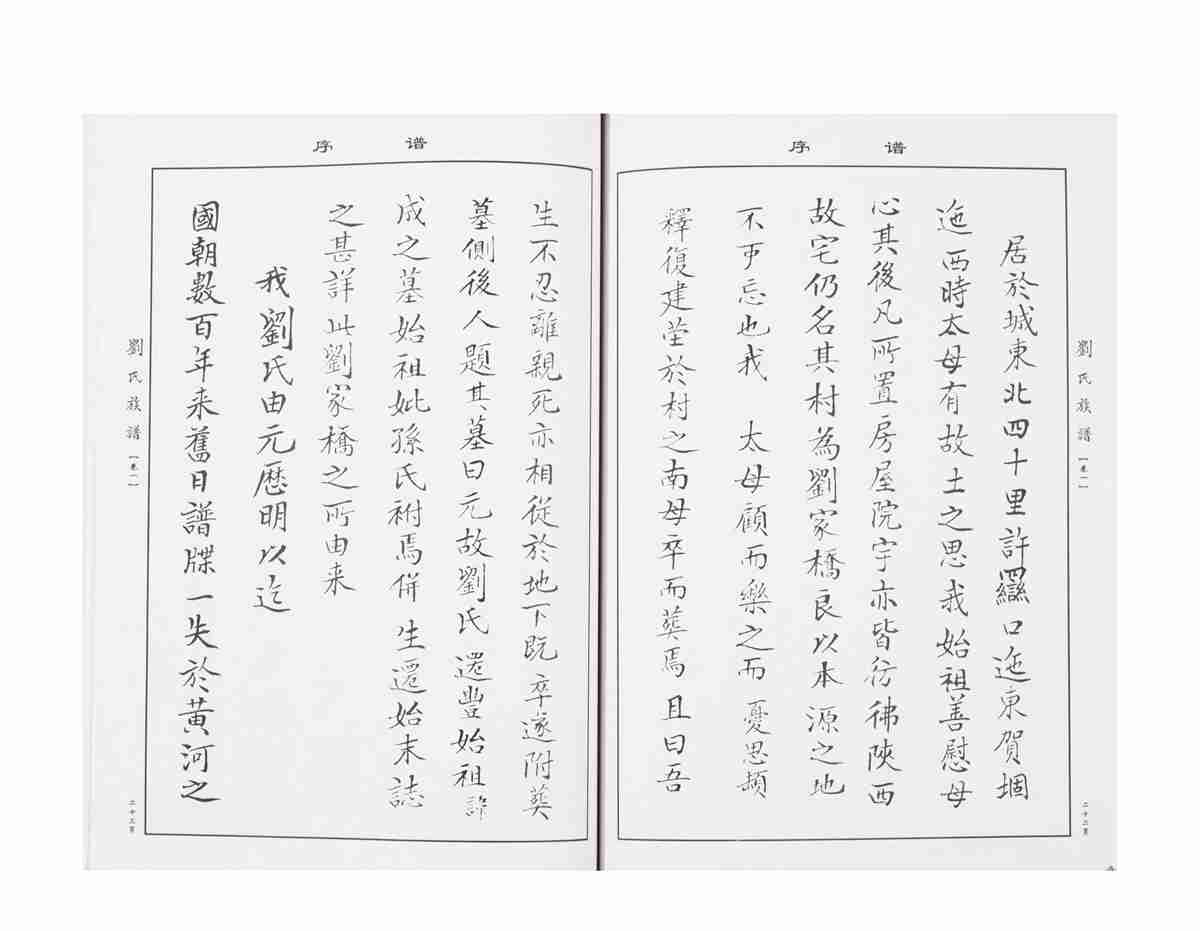 谱序
劉氏族譜
【卷一】
居於城東北四十里許羉口迤東賀堌
迤西時太母有故土之思我始祖善慰母
心其後凡所置房屋院宇亦皆彷彿陝西
故宅仍名其村為劉家橋良以本源之地
不可忘也我 太母顧而樂之而憂思頻
釋復建塋於村之南母卒而葬焉且曰吾
二十二頁
谱序
生不忍離親死亦相從於地下既卒遂附葬
墓側後人題其墓曰元故劉氏遷豐始祖諱
成之墓始祖妣孫氏祔焉併生遷始末誌
之甚詳此劉家橋之所由来
我劉氏由元歷明以迄
國朝數百年来舊日譜牒一失於黃河之
劉氏族譜
【卷一】
二十三頁